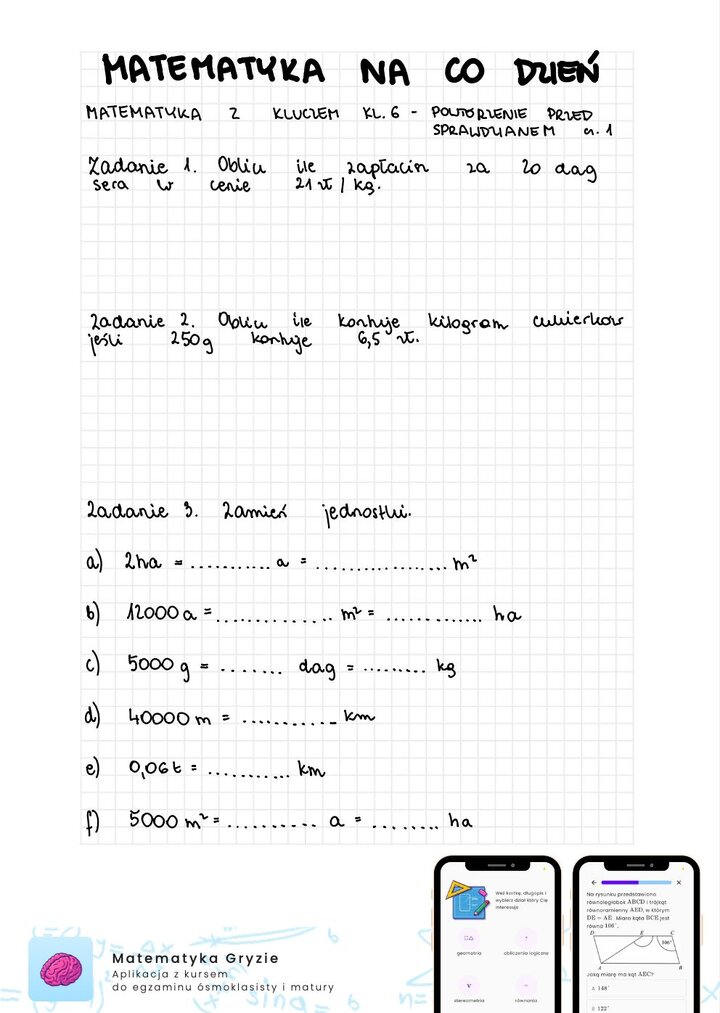 MATEMATYKA NA CO DZIEŃ
MATEMATYKA Z KLUCZEM KL. 6 - POWTÓRZENIE PRZED
SPRAWDZIANEM cz. 1
Zadanie 1. Oblicz ile zapłacisz za 20 dag
sera w cenie 21 zł / kg.
Zadanie 2. Oblicz ile kosztuje kilogram cukierków
jeśli 250g kosztuje 6,5 zł.
Zadanie 3. Zamień jednostki.
a) 2ha = ........... a = ................. m²
b) 12000 a = ............... m² = ............. ha
c) 5000 g = ....... dag = ......... kg
d) 40000 m = ............ km
e) 0,06t = ........... km
f) 5000 m² = ........... a = ........ ha
Matematyka Gryzie
Aplikacja z kursem
do egzaminu ósmoklasisty i matury
Weź kartkę, długopis i
wybierz dział który Cię
interesuje
geometria
obliczenia logiczne
stereometria
równania
Na rysunku przedstawiono
równoległobok ABCD i trójkąt
równoramienny AED, w którym
DE = AE. Miara kąta BCE jest
równa 106°.
D E C
106°
A B
Jaką miarę ma kąt AEC?
A 148°
B 122°